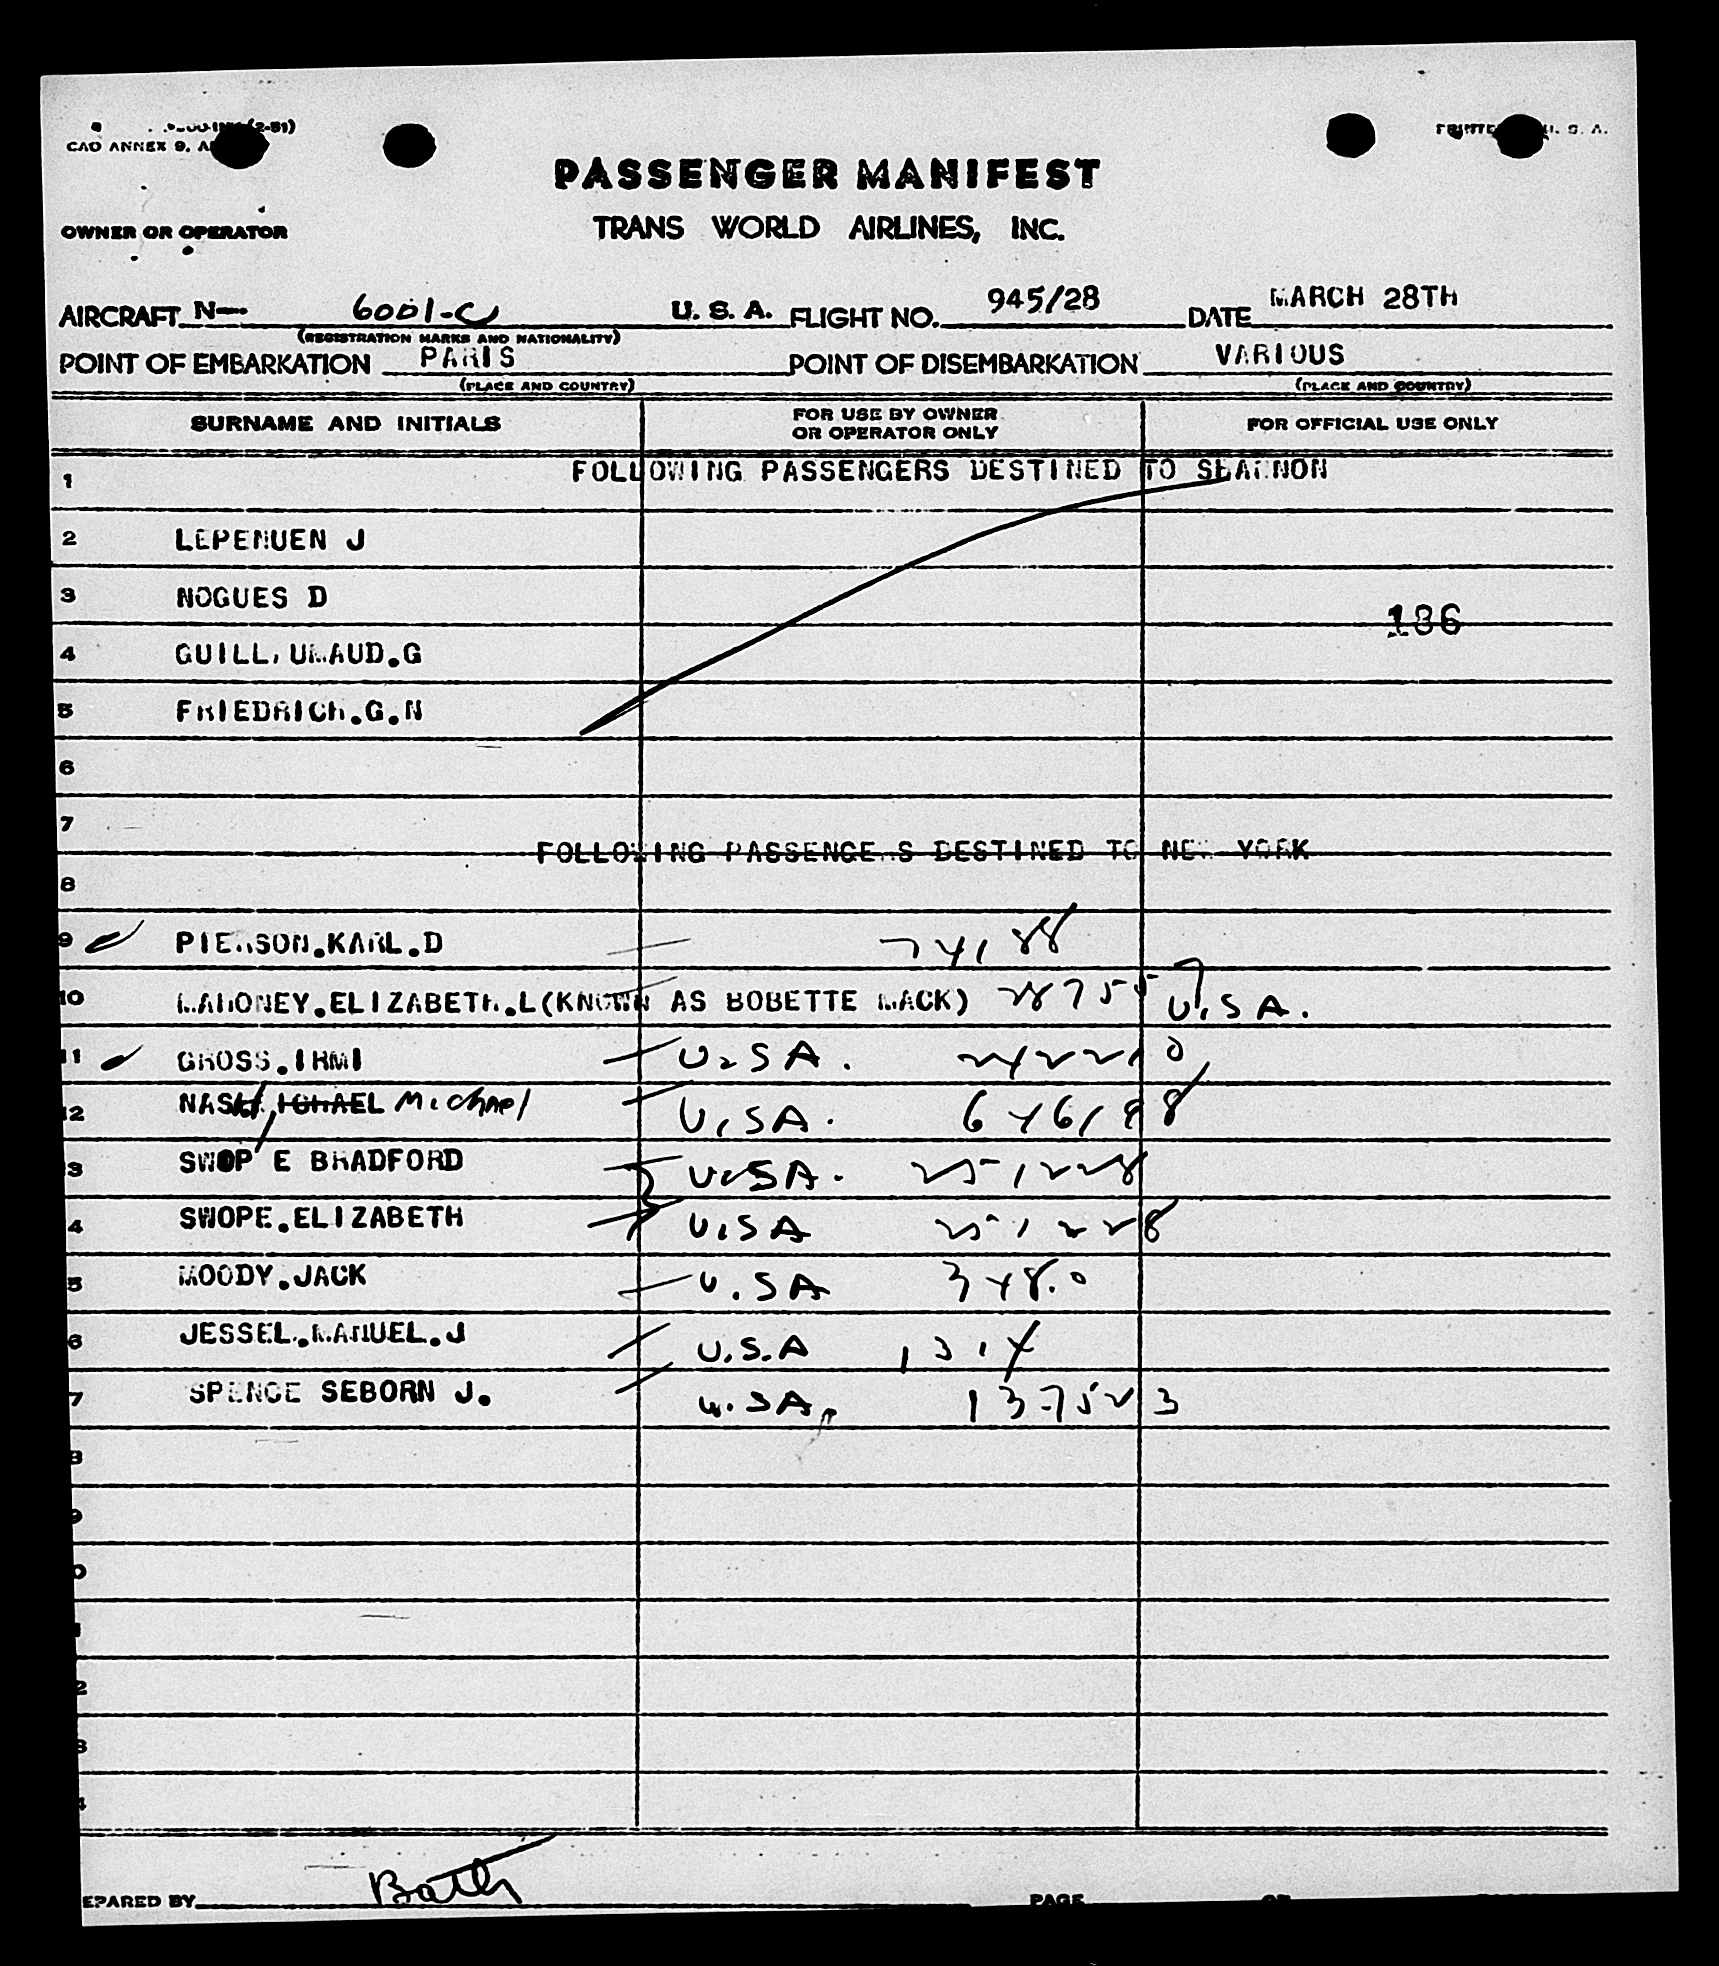 CAO ANNEX 9,
PRINTED U. S. A.
PASSENGER MANIFEST
OWNER OR OPERATOR
TRANS WORLD AIRLINES, INC.
AIRCRAFT N— 6001-C U. S. A. FLIGHT NO. 945/28 DATE MARCH 28TH
(REGISTRATION MARKS AND NATIONALITY)
POINT OF EMBARKATION PARIS POINT OF DISEMBARKATION VARIOUS
(PLACE AND COUNTRY) (PLACE AND COUNTRY)
SURNAME AND INITIALS FOR USE BY OWNER OR OPERATOR ONLY FOR OFFICIAL USE ONLY
1 FOLLOWING PASSENGERS DESTINED TO SHANNON
2 LEPENUEN J
3 NOGUES D
186
4 GUILL UMAUD.G
5 FRIEDRICH.G.N
6
7
FOLLOWING PASSENGERS DESTINED TO NEW YORK
8
9 PIERSON.KARL.D 74188
10 MAHONEY.ELIZABETH.L(KNOWN AS BOBETTE MACK) 28755 U.S.A.
11 GROSS.IRMI U.S.A. 242210
12 NASH, Michael U.S.A. 646188
3 SWOPE BRADFORD U.S.A. 251228
4 SWOPE.ELIZABETH U.S.A 251228
5 MOODY.JACK U.S.A 3480
6 JESSEL.MANUEL.J U.S.A 1314
7 SPENCE SEBORN J. U.S.A. 137523
8
9
0
1
2
3
4
EPARED BY PAGE OF